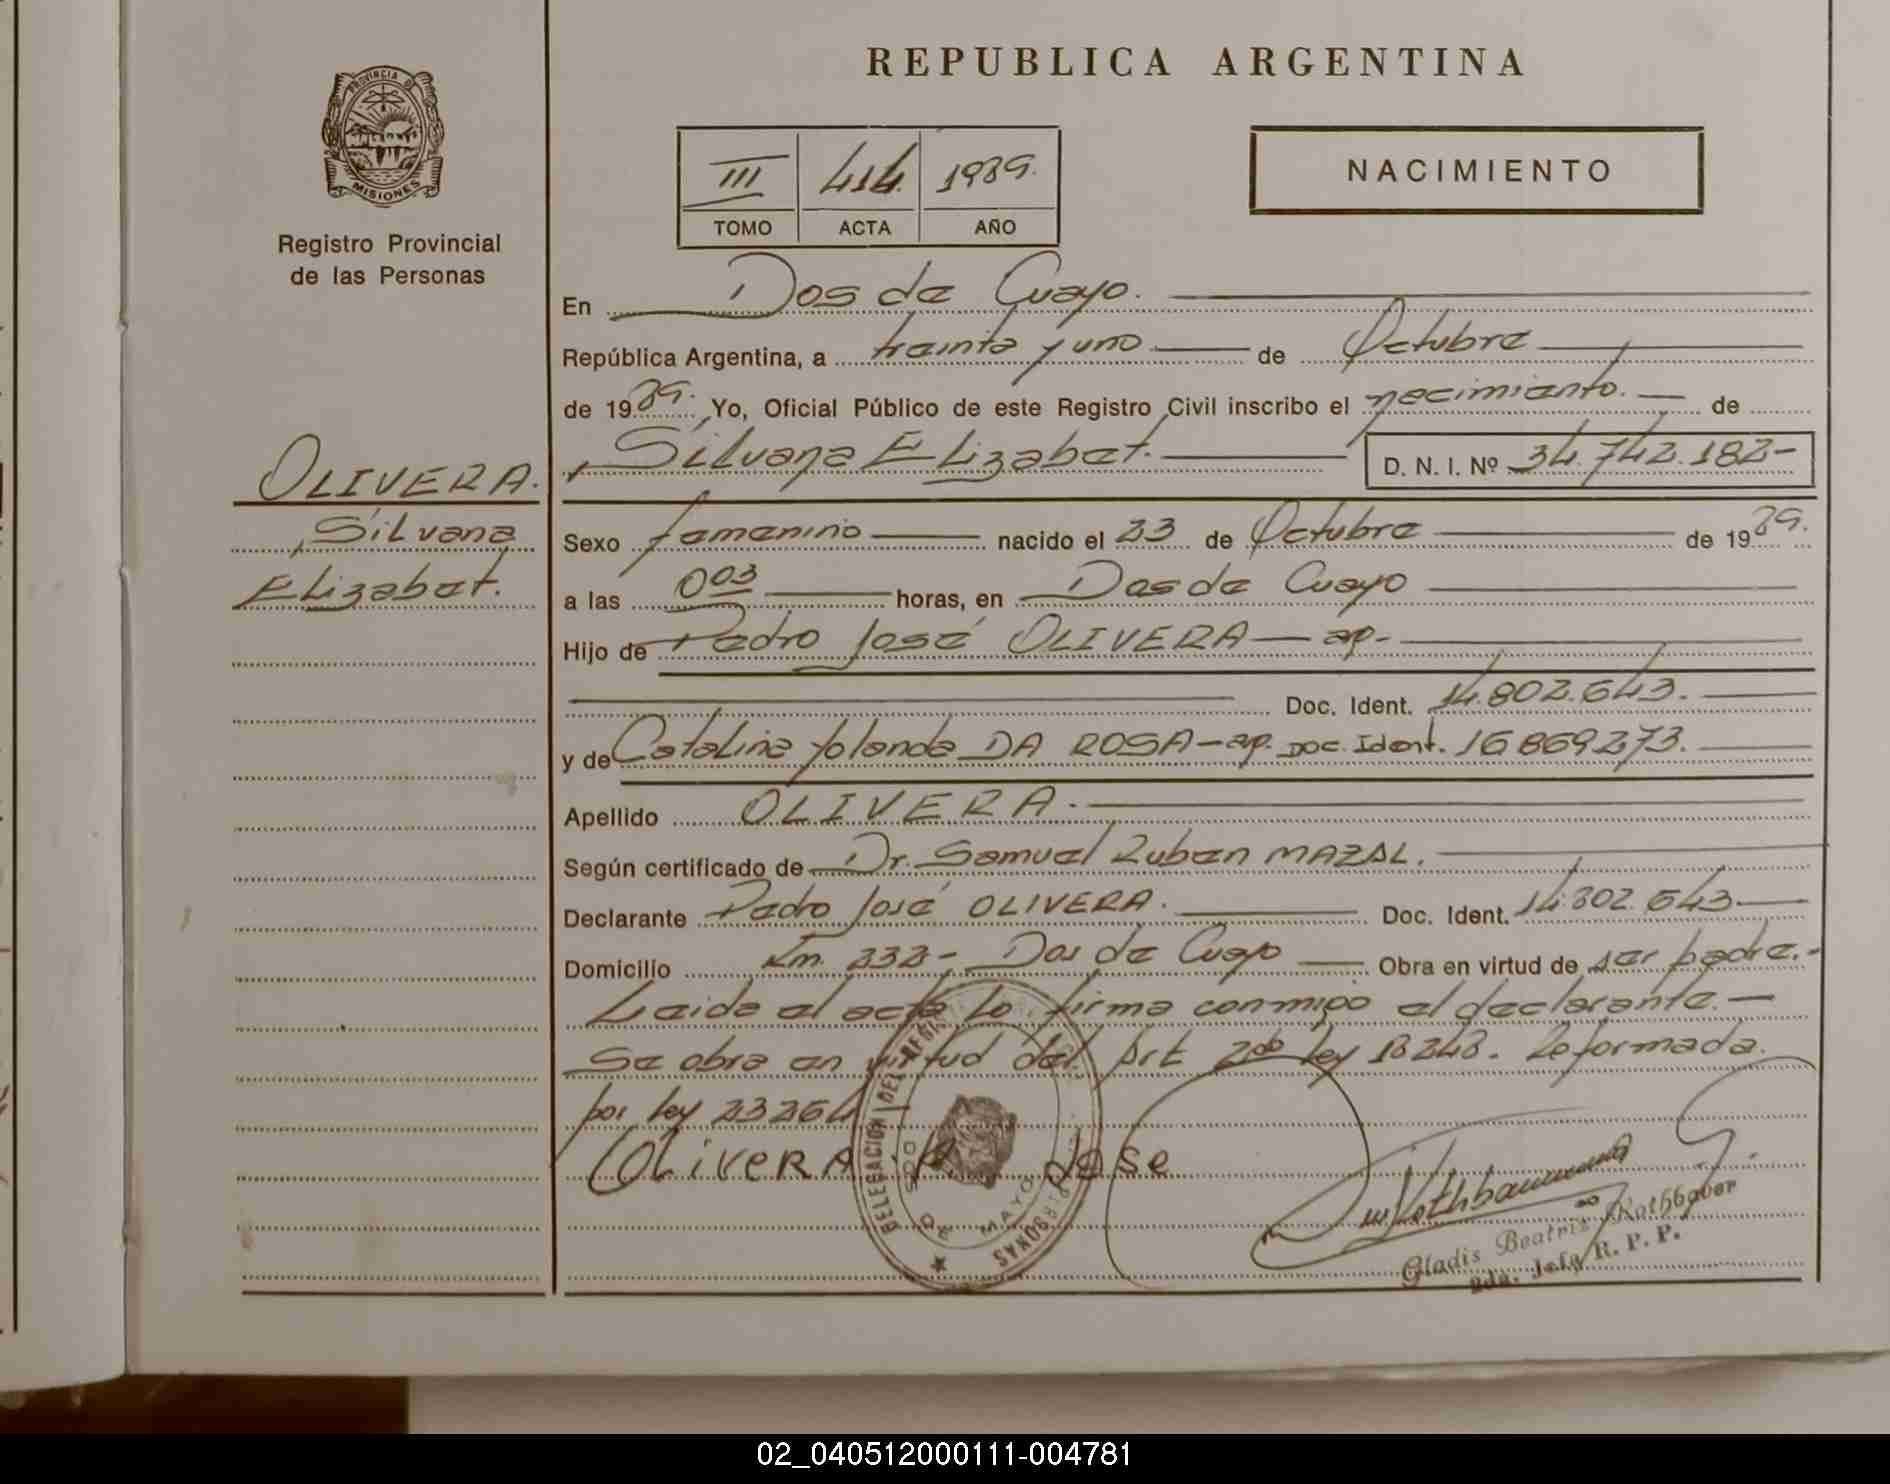 REPUBLICA ARGENTINA
PROVINCIA DE
MISIONES
Registro Provincial
de las Personas
NACIMIENTO
III 414. 1989.
TOMO ACTA AÑO
En Dos de Mayo.
República Argentina, a treinta y uno de Octubre
de 1989. Yo, Oficial Público de este Registro Civil inscribo el nacimiento. de
Silvana Elizabet. D. N. I. Nº 34.742.182-
OLIVERA.
Silvana
Elizabet.
Sexo femenino nacido el 23 de Octubre de 1989.
a las 003 horas, en Dos de Mayo
Hijo de Pedro José OLIVERA - ap-
Doc. Ident. 14.802.643.
y de Catalina Yolanda DA ROSA - ap. Doc. Ident. 16869273.
Apellido OLIVERA.
Según certificado de Dr. Samuel Ruben MAZAL.
Declarante Pedro José OLIVERA. Doc. Ident. 14.802.643
Domicilio Km. 232- Dos de Mayo Obra en virtud de ser padre.-
Leida el acta la firma conmigo el declarante.
Se obra en virtud del Art 2do ley 18248. Reformada
por ley 23264
OLIVERA P. Jose
DELEGACION DEL REGISTRO PERSONAS
DOS DE MAYO
Gladis Beatriz Rothbauer
Jefa R. P. P.
02_040512000111-004781